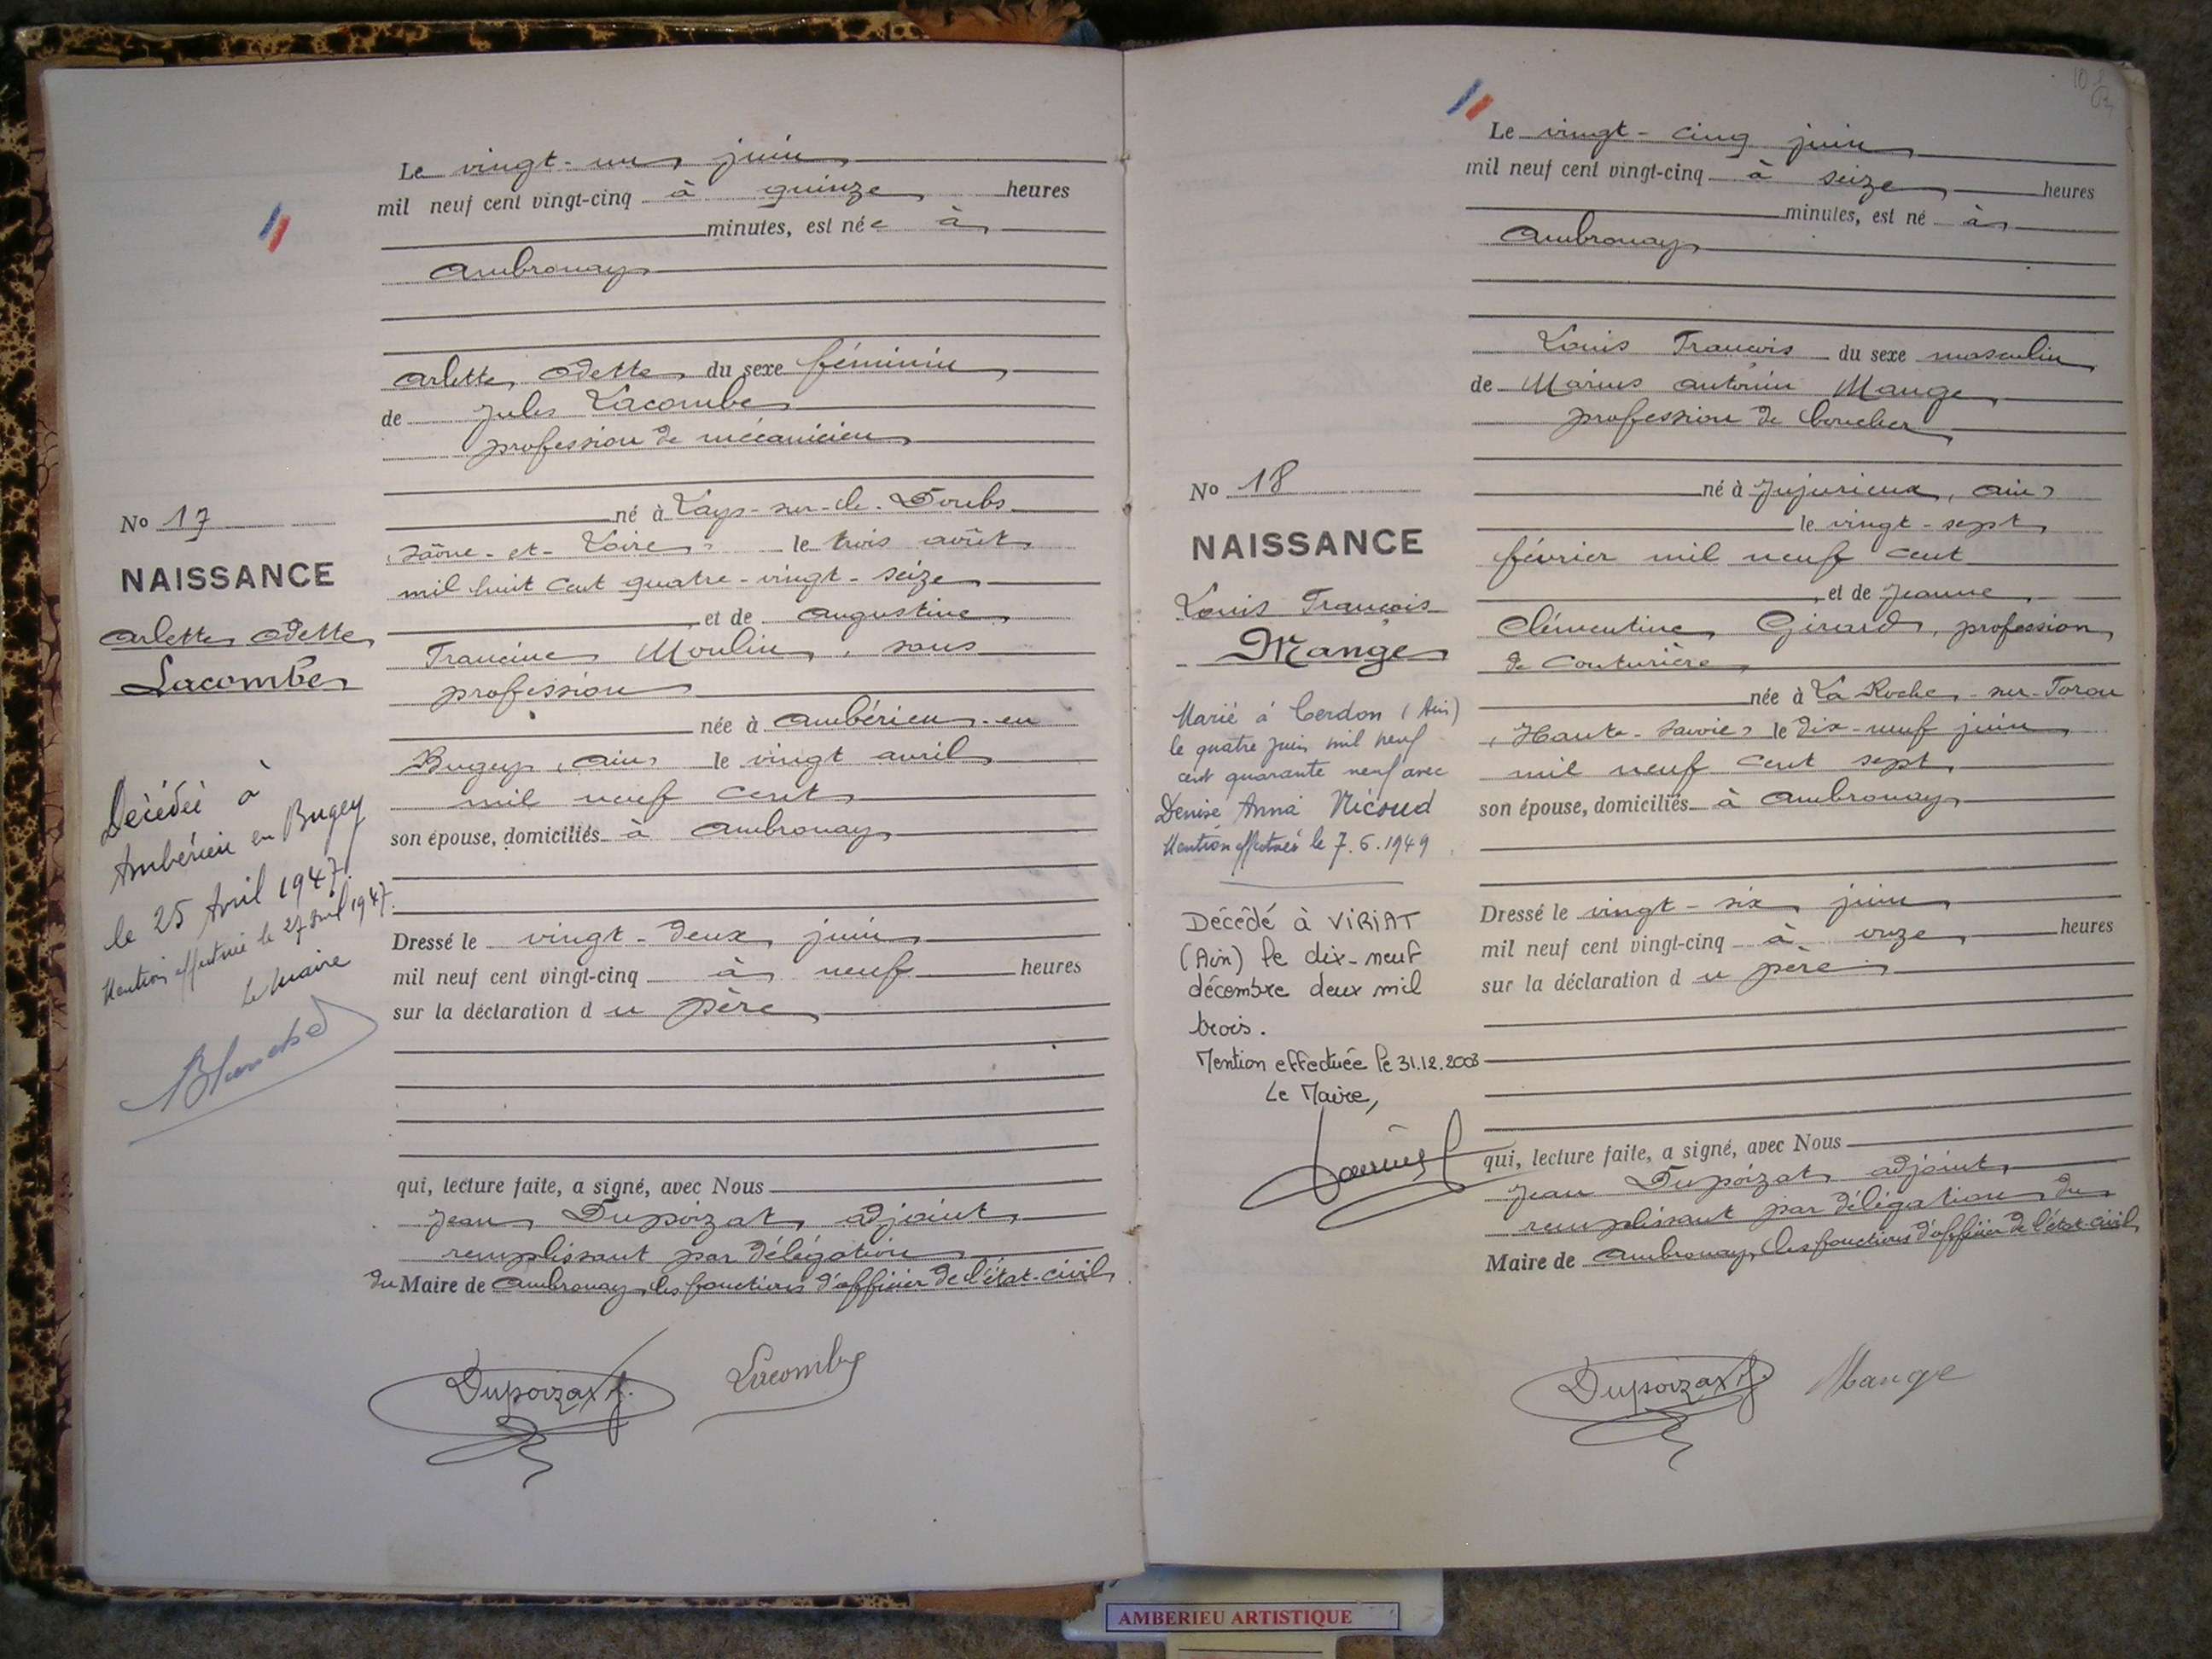 Le vingt-un juin
mil neuf cent vingt-cinq à quinze heures
minutes, est née à
Ambronay
Arlette Odette du sexe féminin
de Jules Lacombe
profession de mécanicien
né à Lays-sur-le-Doubs
(Saône-et-Loire) le trois août
mil huit cent quatre-vingt-seize
et de Augustine
Francine Moulin, sans
profession
née à Ambérieu-en
Bugey (Ain) le vingt avril
mil neuf cent
son épouse, domiciliés à Ambronay
Dressé le vingt-deux juin
mil neuf cent vingt-cinq à neuf heures
sur la déclaration du père
qui, lecture faite, a signé, avec Nous
Jean Dupoizat adjoint
remplissant par délégation
du Maire de Ambronay, les fonctions d'officier de l'état-civil
Dupoizat J.
Lacombe
No 17
NAISSANCE
Arlette Odette
Lacombe
Décédée à
Ambérieu en Bugey
le 25 Avril 1947.
Mention effectuée le 27 Avril 1947.
Le Maire
10
Le vingt-cinq juin
mil neuf cent vingt-cinq à seize heures
minutes, est né à
Ambronay
Louis François du sexe masculin
de Marius Antonin Mange
profession de boucher
né à Jujurieux, (Ain)
le vingt-sept
février mil neuf cent
et de Jeanne
Clémentine Girard, profession
de couturière
née à La Roche-sur-Foron
(Haute-Savoie) le dix-neuf juin
mil neuf cent sept
son épouse, domiciliés à Ambronay
Dressé le vingt-six juin
mil neuf cent vingt-cinq à onze heures
sur la déclaration du père
qui, lecture faite, a signé, avec Nous
Jean Dupoizat adjoint,
remplissant par délégation du
Maire de Ambronay, les fonctions d'officier de l'état-civil
Dupoizat J.
Mange
No 18
NAISSANCE
Louis François
Mange
Marié à Cerdon (Ain)
le quatre juin mil neuf
cent quarante neuf avec
Denise Anna Nicoud
Mention effectuée le 7.6.1949
Décédé à VIRIAT
(Ain) le dix-neuf
décembre deux mil
trois.
Mention effectuée le 31.12.2003
Le Maire,
AMBERIEU ARTISTIQUE